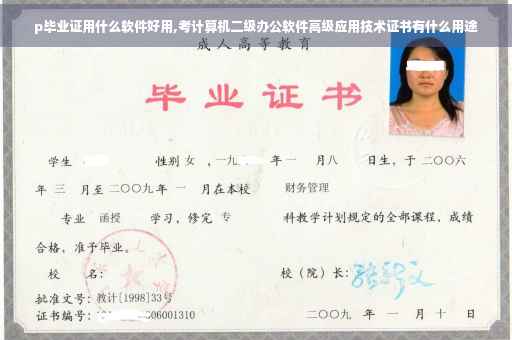 p毕业证用什么软件好用,考计算机二级办公软件高级应用技术证书有什么用途
成人高等教育
毕业证书
学生 性别 女 ，一九 年一 月八 日生，于二〇〇六
年 三 月至二〇〇九年 一 月在本校 财务管理
专业 函授 学习，修完 专 科教学计划规定的全部课程，成绩
合格，准予毕业。
校 名： 校（院）长：
批准文号：教计[1998]33号
证书编号： 06001310 二〇〇九 年 一 月 十 日